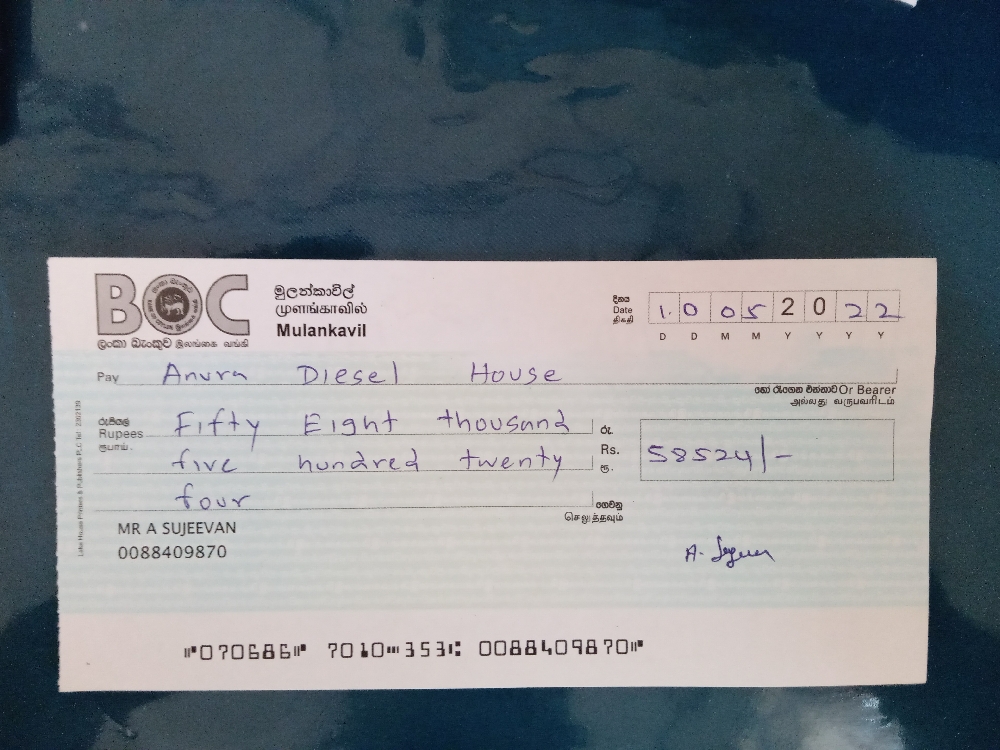 BOC
ලංකා බැංකුව இலங்கை வங்கி
මුලන්කාවිල්
முளங்காவில்
Mulankavil
දිනය
Date
திகதி
10 05 2022
D D M M Y Y Y Y
Pay Anura Diesel House
හෝ රැගෙන එන්නාට Or Bearer
அல்லது வருபவரிடம்
රුපියල්
Rupees
ரூபாய்
Fifty Eight thousand
five hundred twenty
four
රු.
Rs.
ரூ.
58524/-
ගෙවනු
செலுத்தவும்
MR A SUJEEVAN
0088409870
Lake House Printers & Publishers PLC
⑈070686⑈ 7010⑉353⑆ 0088409870⑈